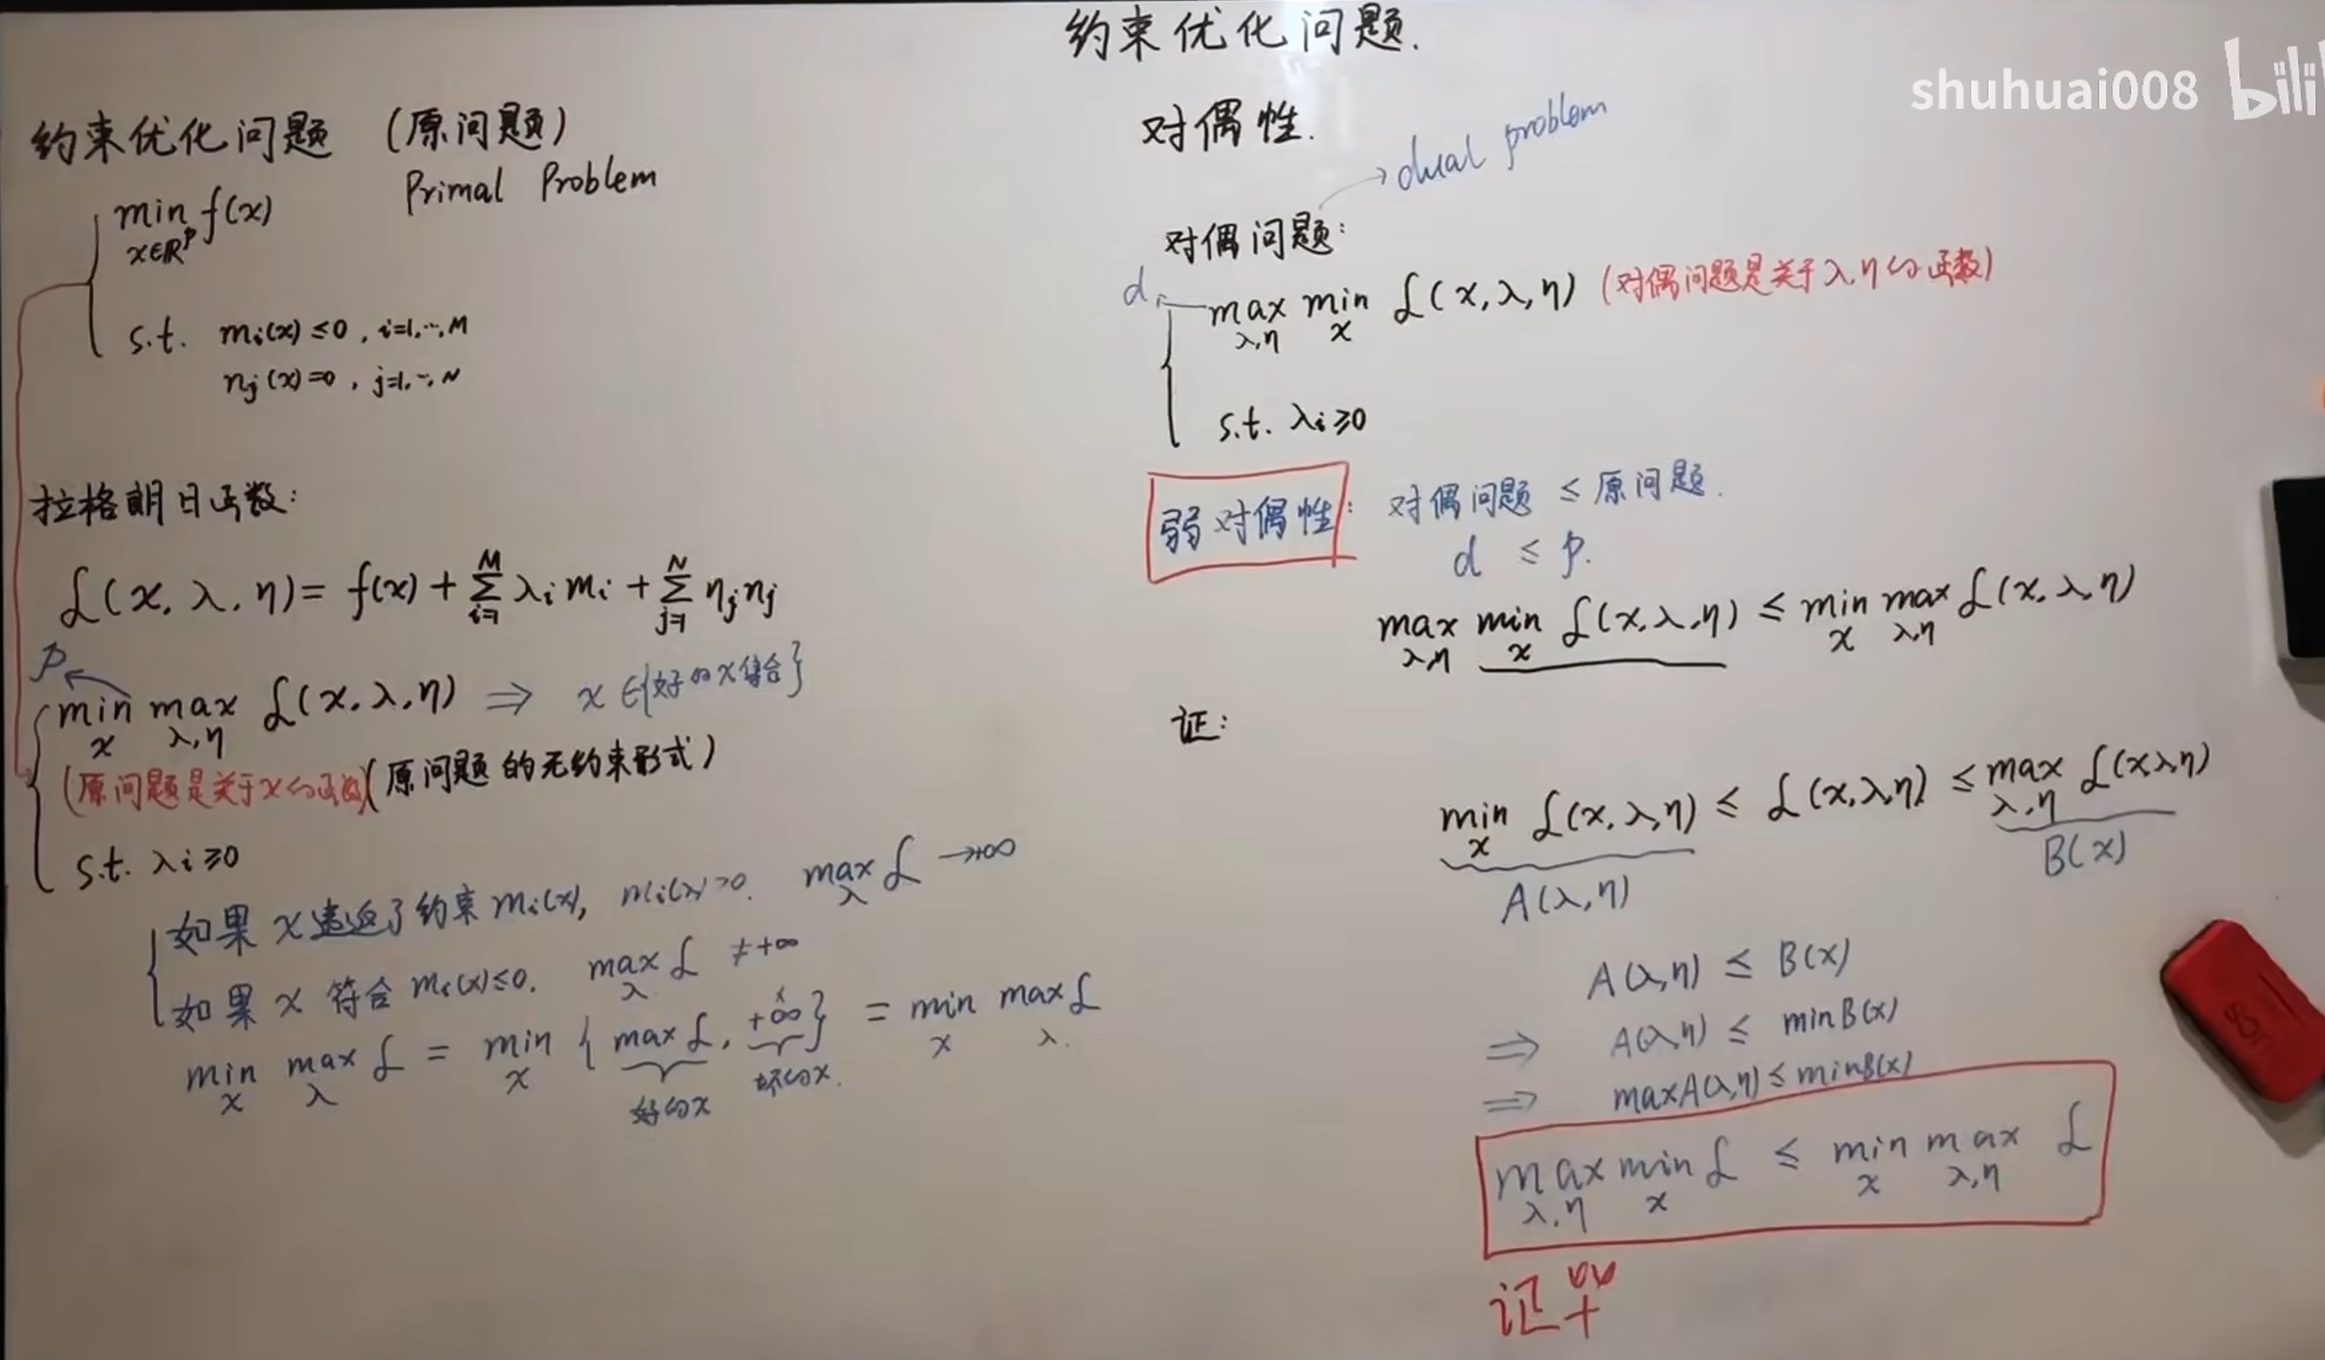 约束优化问题.
shuhuai008 bili
约束优化问题 (原问题)
Primal Problem
min f(x)
x∈ℝᵖ
s.t. mᵢ(x) ≤0 , i=1,…,M
nⱼ(x)=0 , j=1,…,N
拉格朗日函数:
ℒ(x, λ, η) = f(x) + Σ_{i=1}^{M} λᵢ mᵢ + Σ_{j=1}^{N} ηⱼ nⱼ
p
min max ℒ(x, λ, η) ⇒ x ∈{好的x集合}
x λ,η
(原问题是关于x的函数) (原问题的无约束形式)
s.t. λᵢ ≥0
如果 x 违返了约束 mᵢ(x), mᵢ(x)>0. max_λ ℒ →+∞
如果 x 符合 mᵢ(x)≤0. max_λ ℒ ≠+∞
min_x max_λ ℒ = min_x { max ℒ, +∞ } = min_x max_λ ℒ
好的x 坏的x.
对偶性.
→dual problem
对偶问题:
d
max min ℒ(x, λ, η) (对偶问题是关于λ,η的函数)
λ,η x
s.t. λᵢ ≥0
弱对偶性: 对偶问题 ≤ 原问题.
d ≤ p.
max min ℒ(x, λ, η) ≤ min max ℒ(x, λ, η)
λ,η x x λ,η
证:
min ℒ(x, λ, η) ≤ ℒ(x, λ, η) ≤ max ℒ(x,λ,η)
x λ,η
A(λ, η) B(x)
A(λ,η) ≤ B(x)
⇒ A(λ,η) ≤ minB(x)
⇒ maxA(λ,η) ≤ minB(x)
max min ℒ ≤ min max ℒ
λ,η x x λ,η